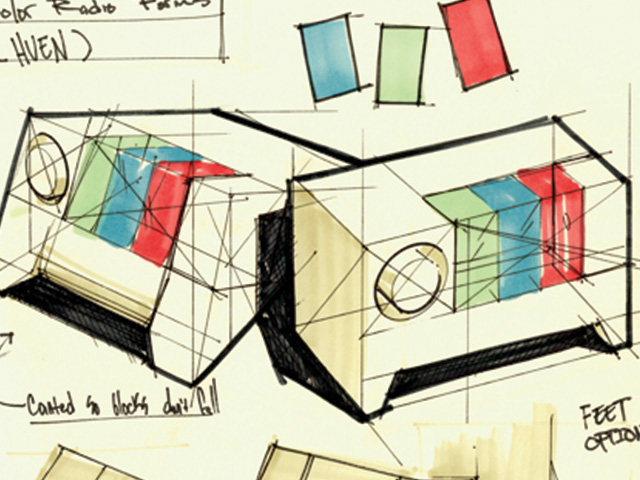 olor Radio Forms
HUEN)
Canted so blocks don't fall
FEET
OPTION